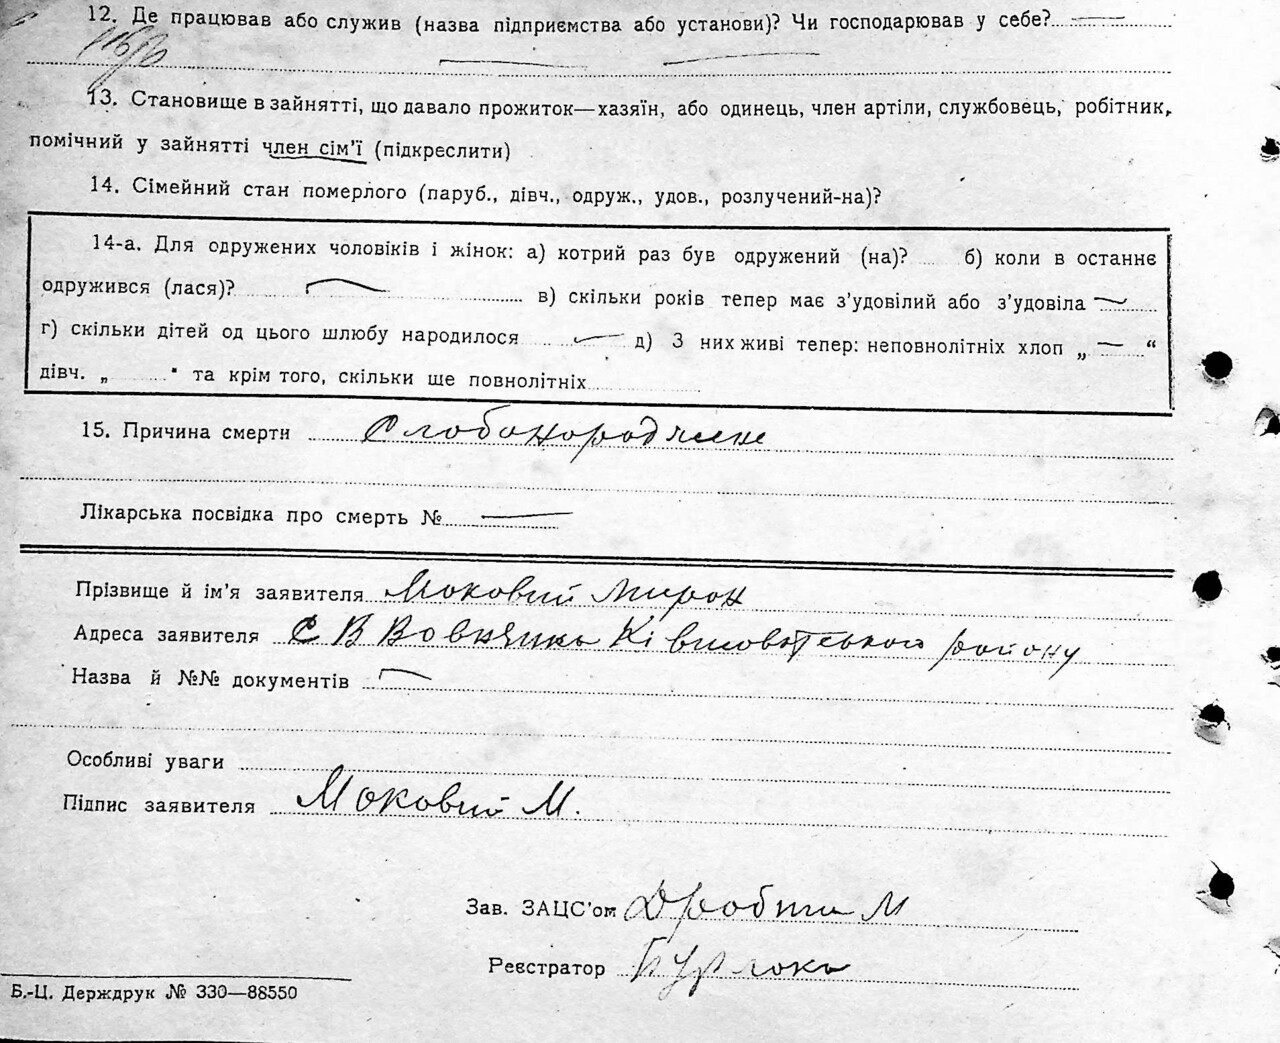 12. Де працював або служив (назва підприємства або установи)? Чи господарював у себе?
13. Становище в зайнятті, що давало прожиток—хазяїн, або одинець, член артіли, службовець, робітник,
помічний у зайнятті член сім'ї (підкреслити)
14. Сімейний стан померлого (паруб., дівч., одруж., удов., розлучений-на)?
14-а. Для одружених чоловіків і жінок: а) котрий раз був одружений (на)? б) коли в останнє
одружився (лася)? в) скільки років тепер має з'удовілий або з'удовіла
г) скільки дітей од цього шлюбу народилося д) З них живі тепер: неповнолітніх хлоп „ — “
дівч. „ " та крім того, скільки ще повнолітніх
15. Причина смерти Слабонороджене
Лікарська посвідка про смерть № —
Прізвище й ім'я заявителя Моковий Мирон
Адреса заявителя С В Вовнянка району
Назва й №№ документів —
Особливі уваги
Підпис заявителя Моковий М.
Зав. ЗАЦС'ом М
Реєстратор Бурлака
Б.-Ц. Держдрук № 330—88550